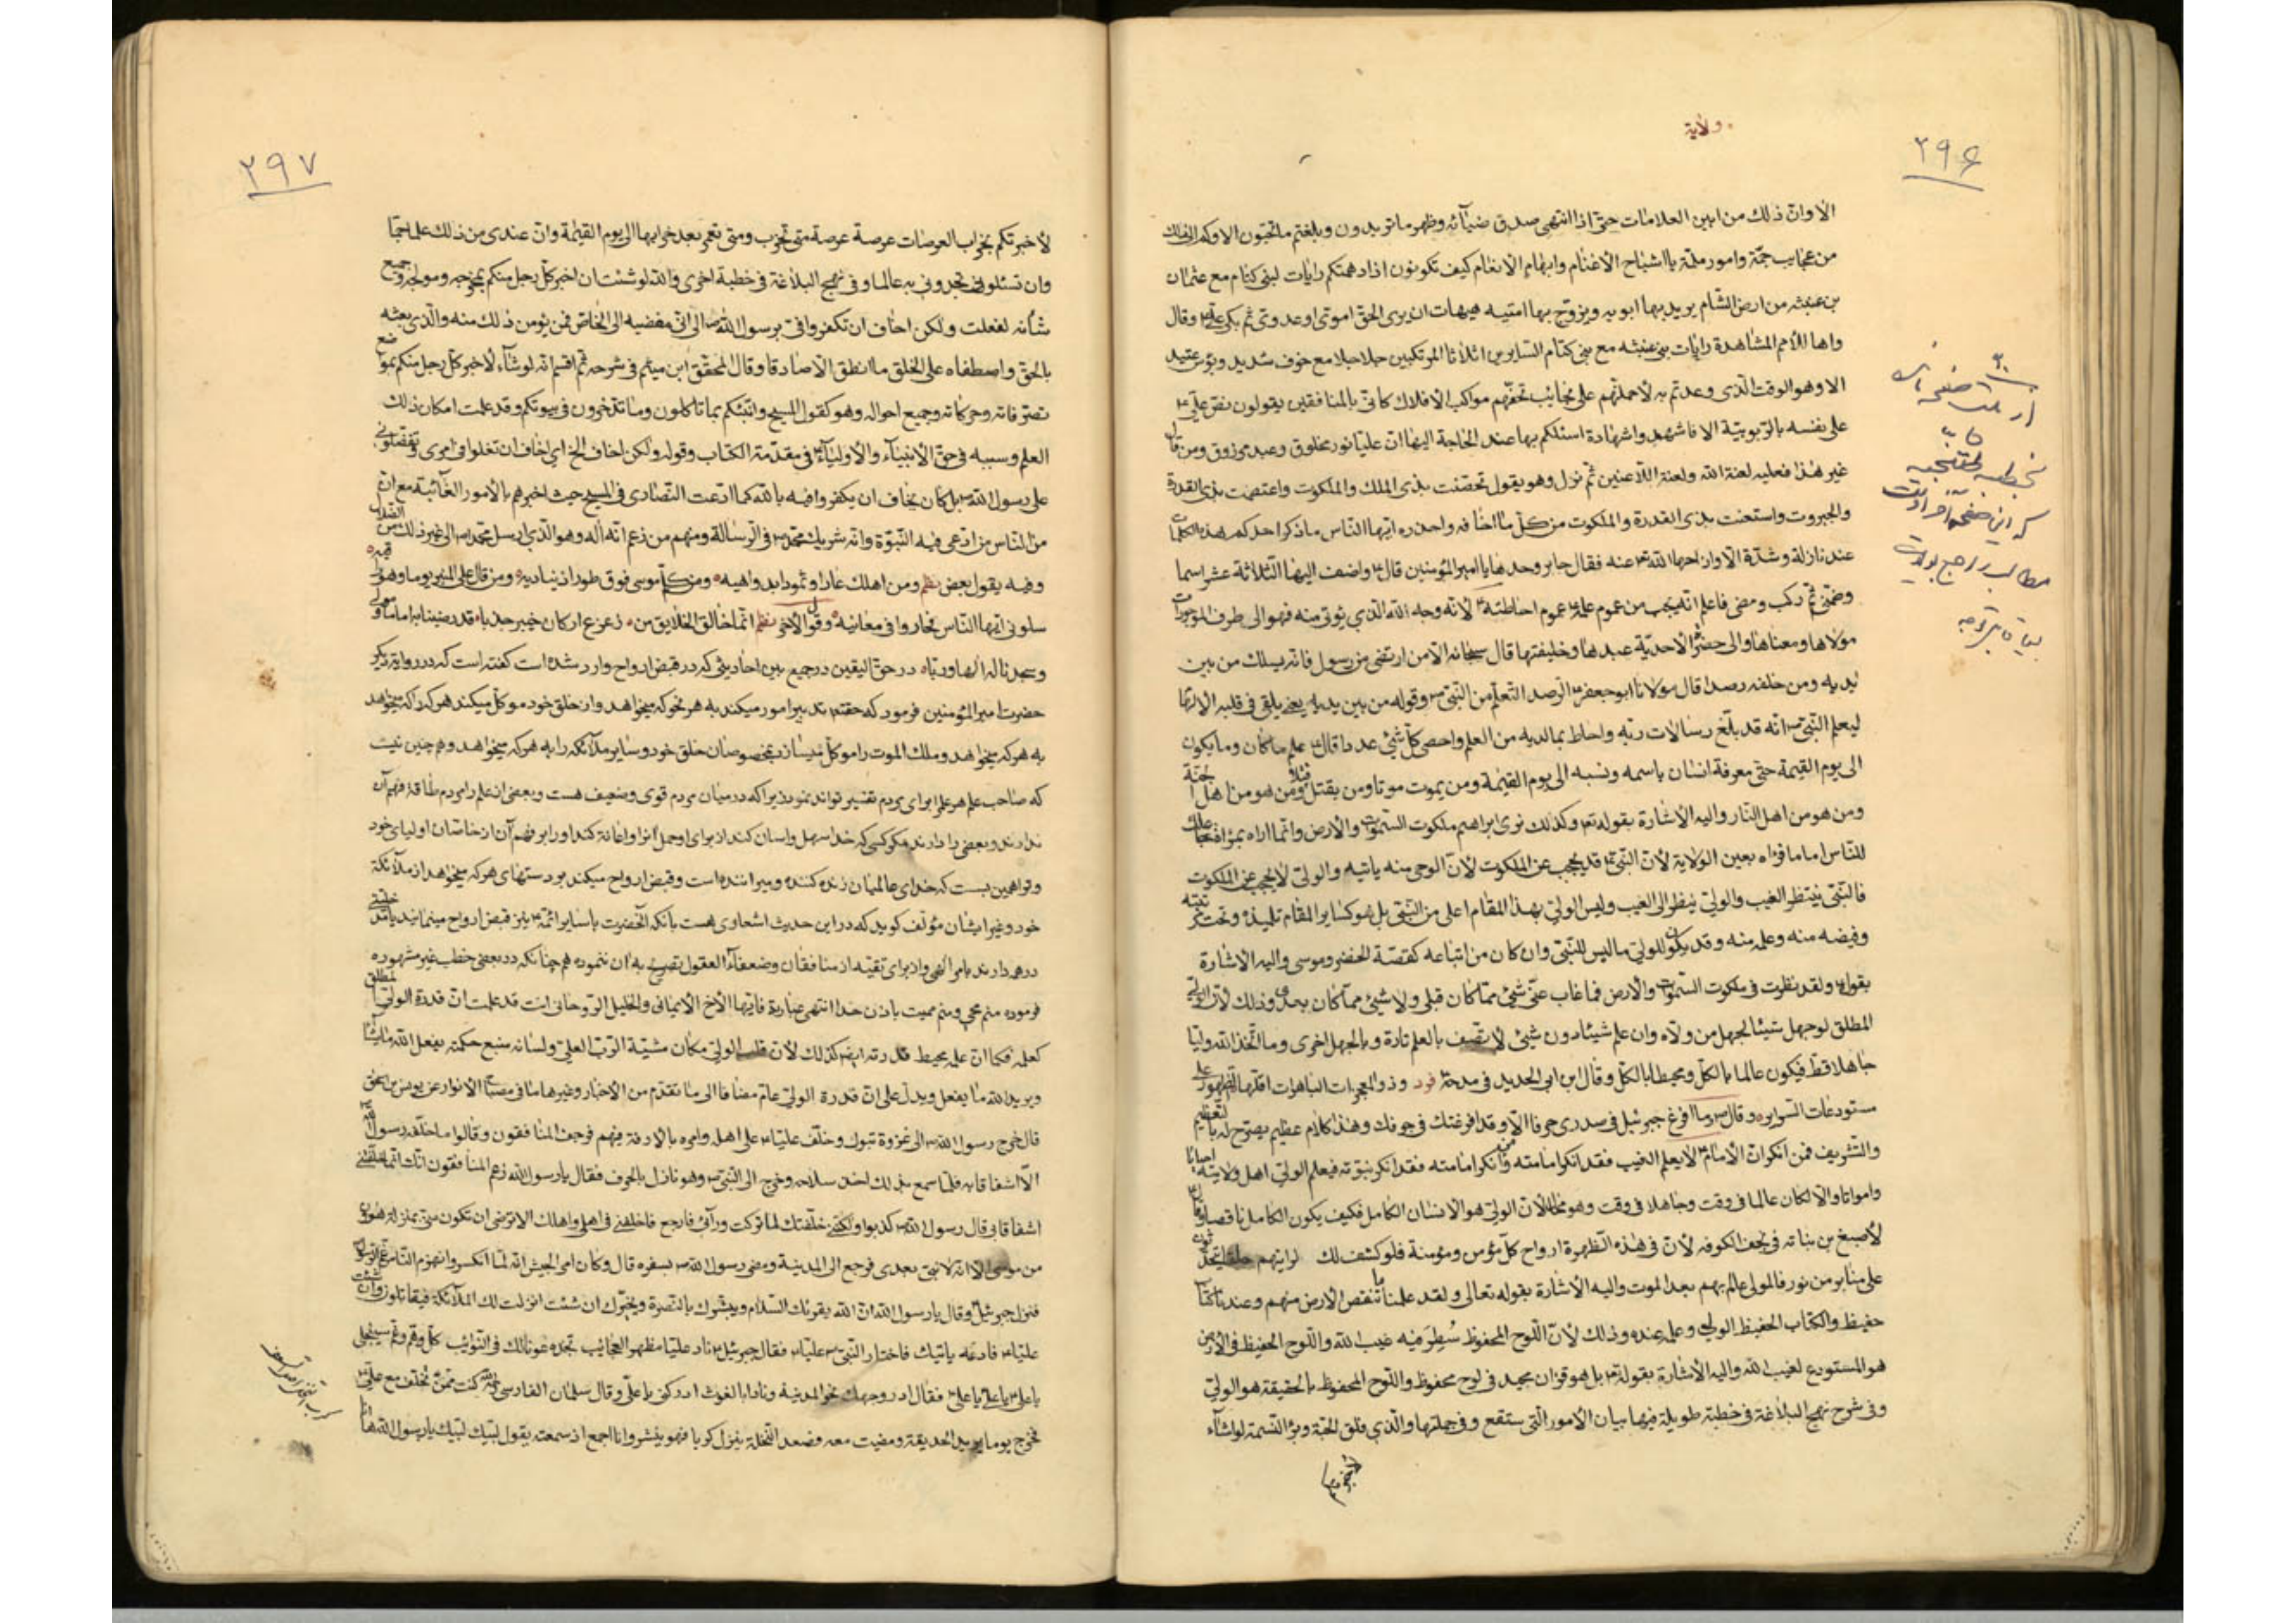 ولایة
۲۹۶
الا وان ذلك من ابین العلامات حتی اذا انتهی صدق ضیآئه وظهر ما تریدون وبلغتم ما تحبون الا وكم الی ذلك
من عجایب جمّة وامور ملمّة یا اشباح الاغنام وابهام الانعام كیف تكونون اذا دهمتكم رایات لبنی كنام مع عثمان
بن عنبثه من ارض الشام یرید بها ابویه ویزوج بها امتیه هیهات ان یری الحق اموی او عدوی ثم بكی علیه وقال
واها للأمم المشاهدة رایات بنی عنبثه مع بنی كنام السایرین اثلاثا المرتكبین جبلا جبلا مع خوف شدید وبؤس عتید
الا وهو الوقت الذی وعدتم به لأحملنهم علی نجائب تحفهم مواكب الافلاك كانی بالمنافقین یقولون نص علیّ
علی نفسه بالربوبیة الا فاشهدوا شهادة اسئلكم بها عند الحاجة الیها ان علیا نور مخلوق وعبد مرزوق ومن قال
غیر هذا فعلیه لعنة الله ولعنة اللاعنین ثم نزل وهو یقول تحصنت بذی الملك والملكوت واعتصمت بذی القدرة
والجبروت واستعنت بذی القدرة والملكوت من كل ما اخافه واحذره ایها الناس ما ذكر احدكم هذه الكلمات
عند نازلة وشدّة الا وازاحها الله عنه فقال جابر وحدها یا امیر المؤمنین قال واضف الیها الثلاثة عشر اسما
وضمّنی ثم ركب ومضی فاعلم انه یجب من عموم علمه عموم احاطته لأنه وجه الله الذی یؤتی منه فهو الی طرف الموجودات
مولاها ومعناها والی حضرة الاحدیّة عبدها وخلیفتها قال سبحانه الا من ارتضی من رسول فانه یسلك من بین
یدیه ومن خلفه رصدا قال مولانا ابو جعفر الرصد التعلم من النبی وقوله من بین یدیه یعنی یلقی فی قلبه الالهام
لیعلم النبی انه قد بلّغ رسالات ربّه واحاط بما لدیه من العلم واحصی كل شیئ عددا قال علم ما كان وما یكون
الی یوم القیمة حتی معرفة انسان باسمه ونسبه الی یوم القیمة ومن یموت موتا ومن یقتل قتلا ومن هو من اهل الجنة
ومن هو من اهل النار والیه الأشارة بقوله تع وكذلك نری ابراهیم ملكوت السموات والأرض وانما اراه
للناس اماما فراه بعین الولایة لأن النبی قد یحجب عن الملكوت لأن الوحی منه یاتیه والولی لا یحجب عن الملكوت
فالنبی ینتظر الغیب والولی ینظر الی الغیب ولیس الولی بهذا المقام اعلی من النبی بل هو كسایر المقام تلمیذه وتحت رتبته
وفیضه منه وعلمه منه وقد یكون للولی ما لیس للنبی وان كان من اتباعه كقصة الخضر وموسی والیه الاشارة
بقوله ولقد نظرت فی ملكوت السموات والأرض فما غاب عنی شیئ مما كان قبلی ولا شیئ مما كان بعدی وذلك لأن الولی
المطلق لو جهل شیئا لجهل من ولاه وان علم شیئا دون شیئ لا یتصف بالعلم تارة وبالجهل اخری وما اتخذ الله ولیا
جاهلا قط فیكون عالما بالكل ومحیطا بالكل وقال ابن ابی الحدید فی مدحه فرد وذو المعجزات الباهرات اقلها الظهور علی
مستودعات السرایر وقال ما افرغ جبرئیل فی صدری حرفا الا وقد افرغتك فی جوفك وهذا كلام عظیم یصرح له بالتعظیم
والتشریف فمن انكر ان الأمام لا یعلم الغیب فقد انكر امامته ومن انكر امامته فقد انكر نبوته فیعلم الولی اهل ولایته احیانا
وامواتا والا لكان عالما فی وقت وجاهلا فی وقت وهو محال لأن الولی هو الانسان الكامل فكیف یكون الكامل ناقصا وقال
لأصبغ بن نباته فی نجف الكوفه لأن فی هذه الظهرة ارواح كل مؤمن ومؤمنة فلو كشف لك لرایتهم حلقا یتحدثون
علی منابر من نور فالمولی عالم بهم بعد الموت والیه الأشارة بقوله تعالی ولقد علمنا ما تنقص الأرض منهم وعندنا كتاب
حفیظ والكتاب الحفیظ الولی وعلمه عنده وذلك لأن اللوح المحفوظ سُطِرَ فیه غیب الله واللوح الحفیظ فی الأرض
هو المستودع لغیب الله والیه الأشارة بقوله بل هو قران مجید فی لوح محفوظ واللوح المحفوظ بالحقیقة هو الولی
وفی شرح نهج البلاغة فی خطبة طویلة فیها بیان الأمور التی ستقع وفی جملتها والذی فلق الحبة وبرأ النسمة لو اشآء
از صفحه
خطبه تطنجیه
كه این صفحه آخر آنست
مطالب راجع بولایت
۲۹۷
لأخبرتكم بخراب العرصات عرصة عرصة متی تخرب ومتی تعمر بعد خرابها الی یوم القیمة وان عندی من ذلك علما جما
وان تسئلونی تجدونی به عالما وفی نهج البلاغة فی خطبة اخری والله لو شئت ان اخبر كل رجل منكم بمخرجه ومولجه وجمیع
شأنه لفعلت ولكن اخاف ان تكفروا فیّ برسول الله الا وانی مفضیه الی الخاص ممن یؤمن ذلك منه والذی بعثه
بالحق واصطفاه علی الخلق ما انطق الا صادقا وقال المحقق ابن میثم فی شرحه ثم اقسم انه لو شآء لأخبر كل رجل منكم بمواضع
تصرفاته وحركاته وجمیع احواله وهو كقول المسیح وانبئكم بما تاكلون وما تدخرون فی بیوتكم وقد علمت امكان ذلك
العلم وسببه فی حق الأنبیآء والأولیآء فی مقدمة الكتاب وقوله ولكن اخاف الخ ای اخاف ان تغلوا فی امری وتفضلونی
علی رسول الله بل كان یخاف ان یكفروا فیه بالله كما ادعت النصاری فی المسیح حیث اخبرهم بالأمور الغائبة مع ان
من الناس من ادعی فیه النبوة وانه شریك محمد فی الرسالة ومنهم من زعم انه اله وهو الذی ارسل محمد الی غیر ذلك من الضلال
وفیه یقول بعض نظم ومن اهلك عادا وثمودا بدواهیه ومن كلم موسی فوق طور اذ ینادیه ومن قال علی المنبر یوما وهو راقیه
سلونی ایها الناس فحاروا فی معانیه وقول الأخر نظم انما خالق الخلایق من زعزع اركان خیبر جذبا قد رضینا به اماما ومولی
وسجدنا له الها وربّا ه در حق الیقین در جمیع بین احادیثی كه در قبض ارواح وارد شده است گفته است كه در روایة دیگر
حضرت امیر المؤمنین فرمود كه حقتع تدبیر امور میكند به هر نحو كه میخواهد واز خلق خود موكل میكند هر كه را كه میخواهد
به هر كه میخواهد وملك الموت را موكل میسازد بخصوصان خلق خود وسایر ملآئكه را به هر كه میخواهد وهم چنین نیست
كه صاحب علم هر علم را برای مردم تفسیر تواند نمود زیرا كه در میان مردم قوی وضعیف هست وبعضی از علم را مردم طاقة فهم آن
ندارند وبعضی را دارند مگر كسی كه خدا سهل واسان كند از برای او حمل آنرا واعانة كند او را بر فهم آن از خاصّان اولیای خود
وترا همین بس است كه خدای عالمیان زنده كننده ومیراننده است وقبض ارواح میكند بر دستهای هر كه میخواهد از ملآئكة
خود وغیر ایشان مؤلف گوید كه در این حدیث اشعاری هست بآنكه آنحضرت با سایر ائمة نیز قبض ارواح مینمایند یا مدخلیتی
در هر دارند بامر الهی واز برای تقیّه از منافقان وضعفآء العقول تصریح به آن ننموده هم چنانكه در بعضی خطب غیر مشهوره
فرموده منم محیی ومنم ممیت باذن خدا انتهی عبارته فایها الأخ الأیمانی والخلیل الروحانی انت قد علمت ان قدرة الولی المطلق
كعلمه فكما ان علمه محیط قدرته ایضا كذلك لأن قلب الولی مكان مشیة الرب العلی ولسانه منبع حكمته یفعل الله ما یشآء
ویرید الله ما یفعل ویدل علی ان قدرة الولی عام مضافا الی ما تقدم من الأخبار وغیرها ما فی مصباح الأنوار عن یونس بن
قال خرج رسول الله الی غزوة تبوك وخلف علیا علی اهله وامره بالأرفة فیهم فرجف المنافقون وقالوا ما خلفه رسول الله
الا اشفاقا به فلما سمع بذلك اخذ سلاحه وخرج الی النبی وهو نازل بالجرف فقال یا رسول الله زعم المنافقون انك انما خلفتنی
اشفاقا بی قال رسول الله كذبوا ولكنی خلفتك لما تركت ورآئی فارجع فاخلفنی فی اهلی واهلك الا ترضی ان تكون منی بمنزلة هرون
من موسی الا انه لا نبی بعدی فرجع الی المدینة ومضی رسول الله بسفره قال وكان امر الجیش انه لما انكسر وانهزم الناس عن رسول الله
فنزل جبرئیل وقال یا رسول الله ان الله یقرئك السلام ویبشرك بالنصرة ویخیّرك ان شئت انزلت لك الملآئكة فیقاتلون وان شئت
علیا فادعه یاتیك فاختار النبی علیا فقال جبرئیل ناد علیا مظهر العجائب تجده عونا لك فی النوآئب كل هم وغم سینجلی
یا علی یا علی یا علی فقال ادر وجهك نحو المدینة وناد یا ابا الغوث ادركنی یا علی وقال سلمان الفارسی كنت ممن تخلف مع علی
فخرج یوما یرید الحدیقة ومضیت معه وصعد النخلة ینزل كربا فهو ینثر وانا اجمع اذ سمعته یقول لبیك لبیك یا رسول الله ها انا